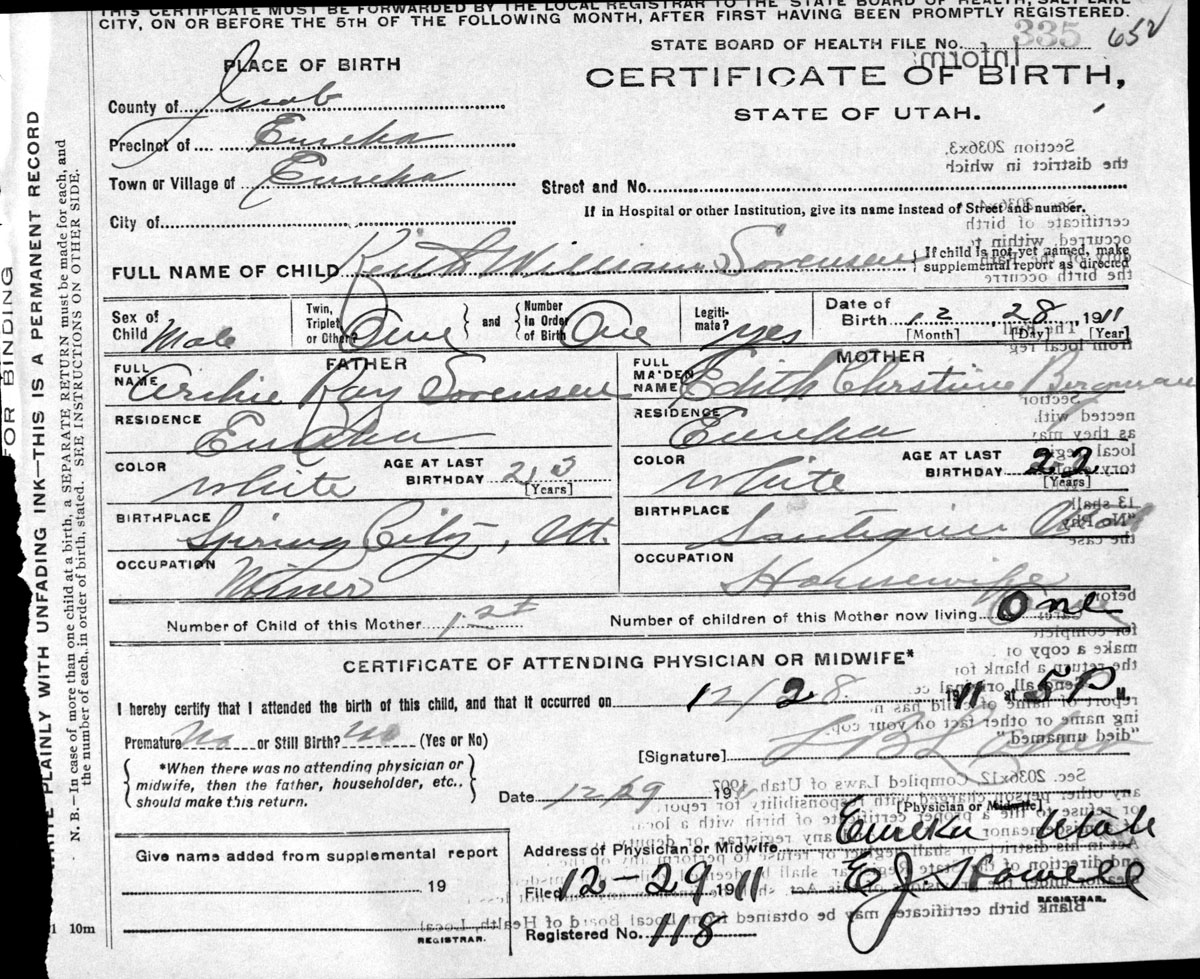 THIS CERTIFICATE MUST BE FORWARDED BY THE LOCAL REGISTRAR TO THE STATE BOARD OF HEALTH, SALT LAKE
CITY, ON OR BEFORE THE 5TH OF THE FOLLOWING MONTH, AFTER FIRST HAVING BEEN PROMPTLY REGISTERED.
STATE BOARD OF HEALTH FILE No. 335 652
PLACE OF BIRTH
CERTIFICATE OF BIRTH,
STATE OF UTAH.
County of Juab
Precinct of Eureka
Town or Village of Eureka
Street and No.
If in Hospital or other Institution, give its name instead of Street and number.
City of
FULL NAME OF CHILD Keith William Sorensen
{ If child is not yet named, make
supplemental report as directed
Sex of Child Male
Twin, Triplet, or Other? One } and { Number In Order of Birth One
Legiti-mate? yes
Date of Birth 12 28 1911
[Month] [Day] [Year]
FATHER
FULL NAME Archie Ray Sorensen
RESIDENCE Eureka
COLOR White
AGE AT LAST BIRTHDAY 23
[Years]
BIRTHPLACE Spring City, Ut.
OCCUPATION Miner
MOTHER
FULL MAIDEN NAME Edith Christine Bergman
RESIDENCE Eureka
COLOR White
AGE AT LAST BIRTHDAY 22
[Years]
BIRTHPLACE Santaquin
OCCUPATION Housewife
Number of Child of this Mother 1st
Number of children of this Mother now living One
CERTIFICATE OF ATTENDING PHYSICIAN OR MIDWIFE*
I hereby certify that I attended the birth of this child, and that it occurred on 12/28 1911 at 5 P M.
Premature No or Still Birth? No (Yes or No)
{ *When there was no attending physician or
midwife, then the father, householder, etc.,
should make this return. }
[Signature]
Date 12/29 191
[Physician or Midwife]
Address of Physician or Midwife Eureka Utah
Give name added from supplemental report
19
REGISTRAR.
Filed 12-29 1911 E. J. Howell
REGISTRAR.
Registered No. 118
10m
FOR BINDING
WRITE PLAINLY WITH UNFADING INK—THIS IS A PERMANENT RECORD
N. B.—In case of more than one child at a birth, a SEPARATE RETURN must be made for each, and
the number of each, in order of birth, stated. SEE INSTRUCTIONS ON OTHER SIDE.